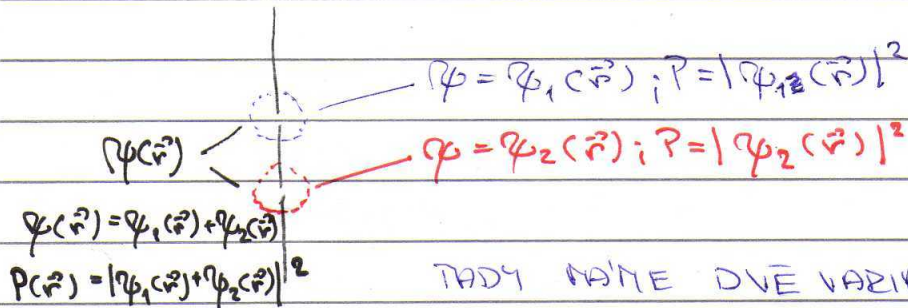 ψ = ψ₁(r⃗); P = |ψ₁(r⃗)|²
ψ(r⃗)
ψ = ψ₂(r⃗); P = |ψ₂(r⃗)|²
ψ(r⃗) = ψ₁(r⃗) + ψ₂(r⃗)
P(r⃗) = |ψ₁(r⃗) + ψ₂(r⃗)|²
TADY MÁME DVĚ